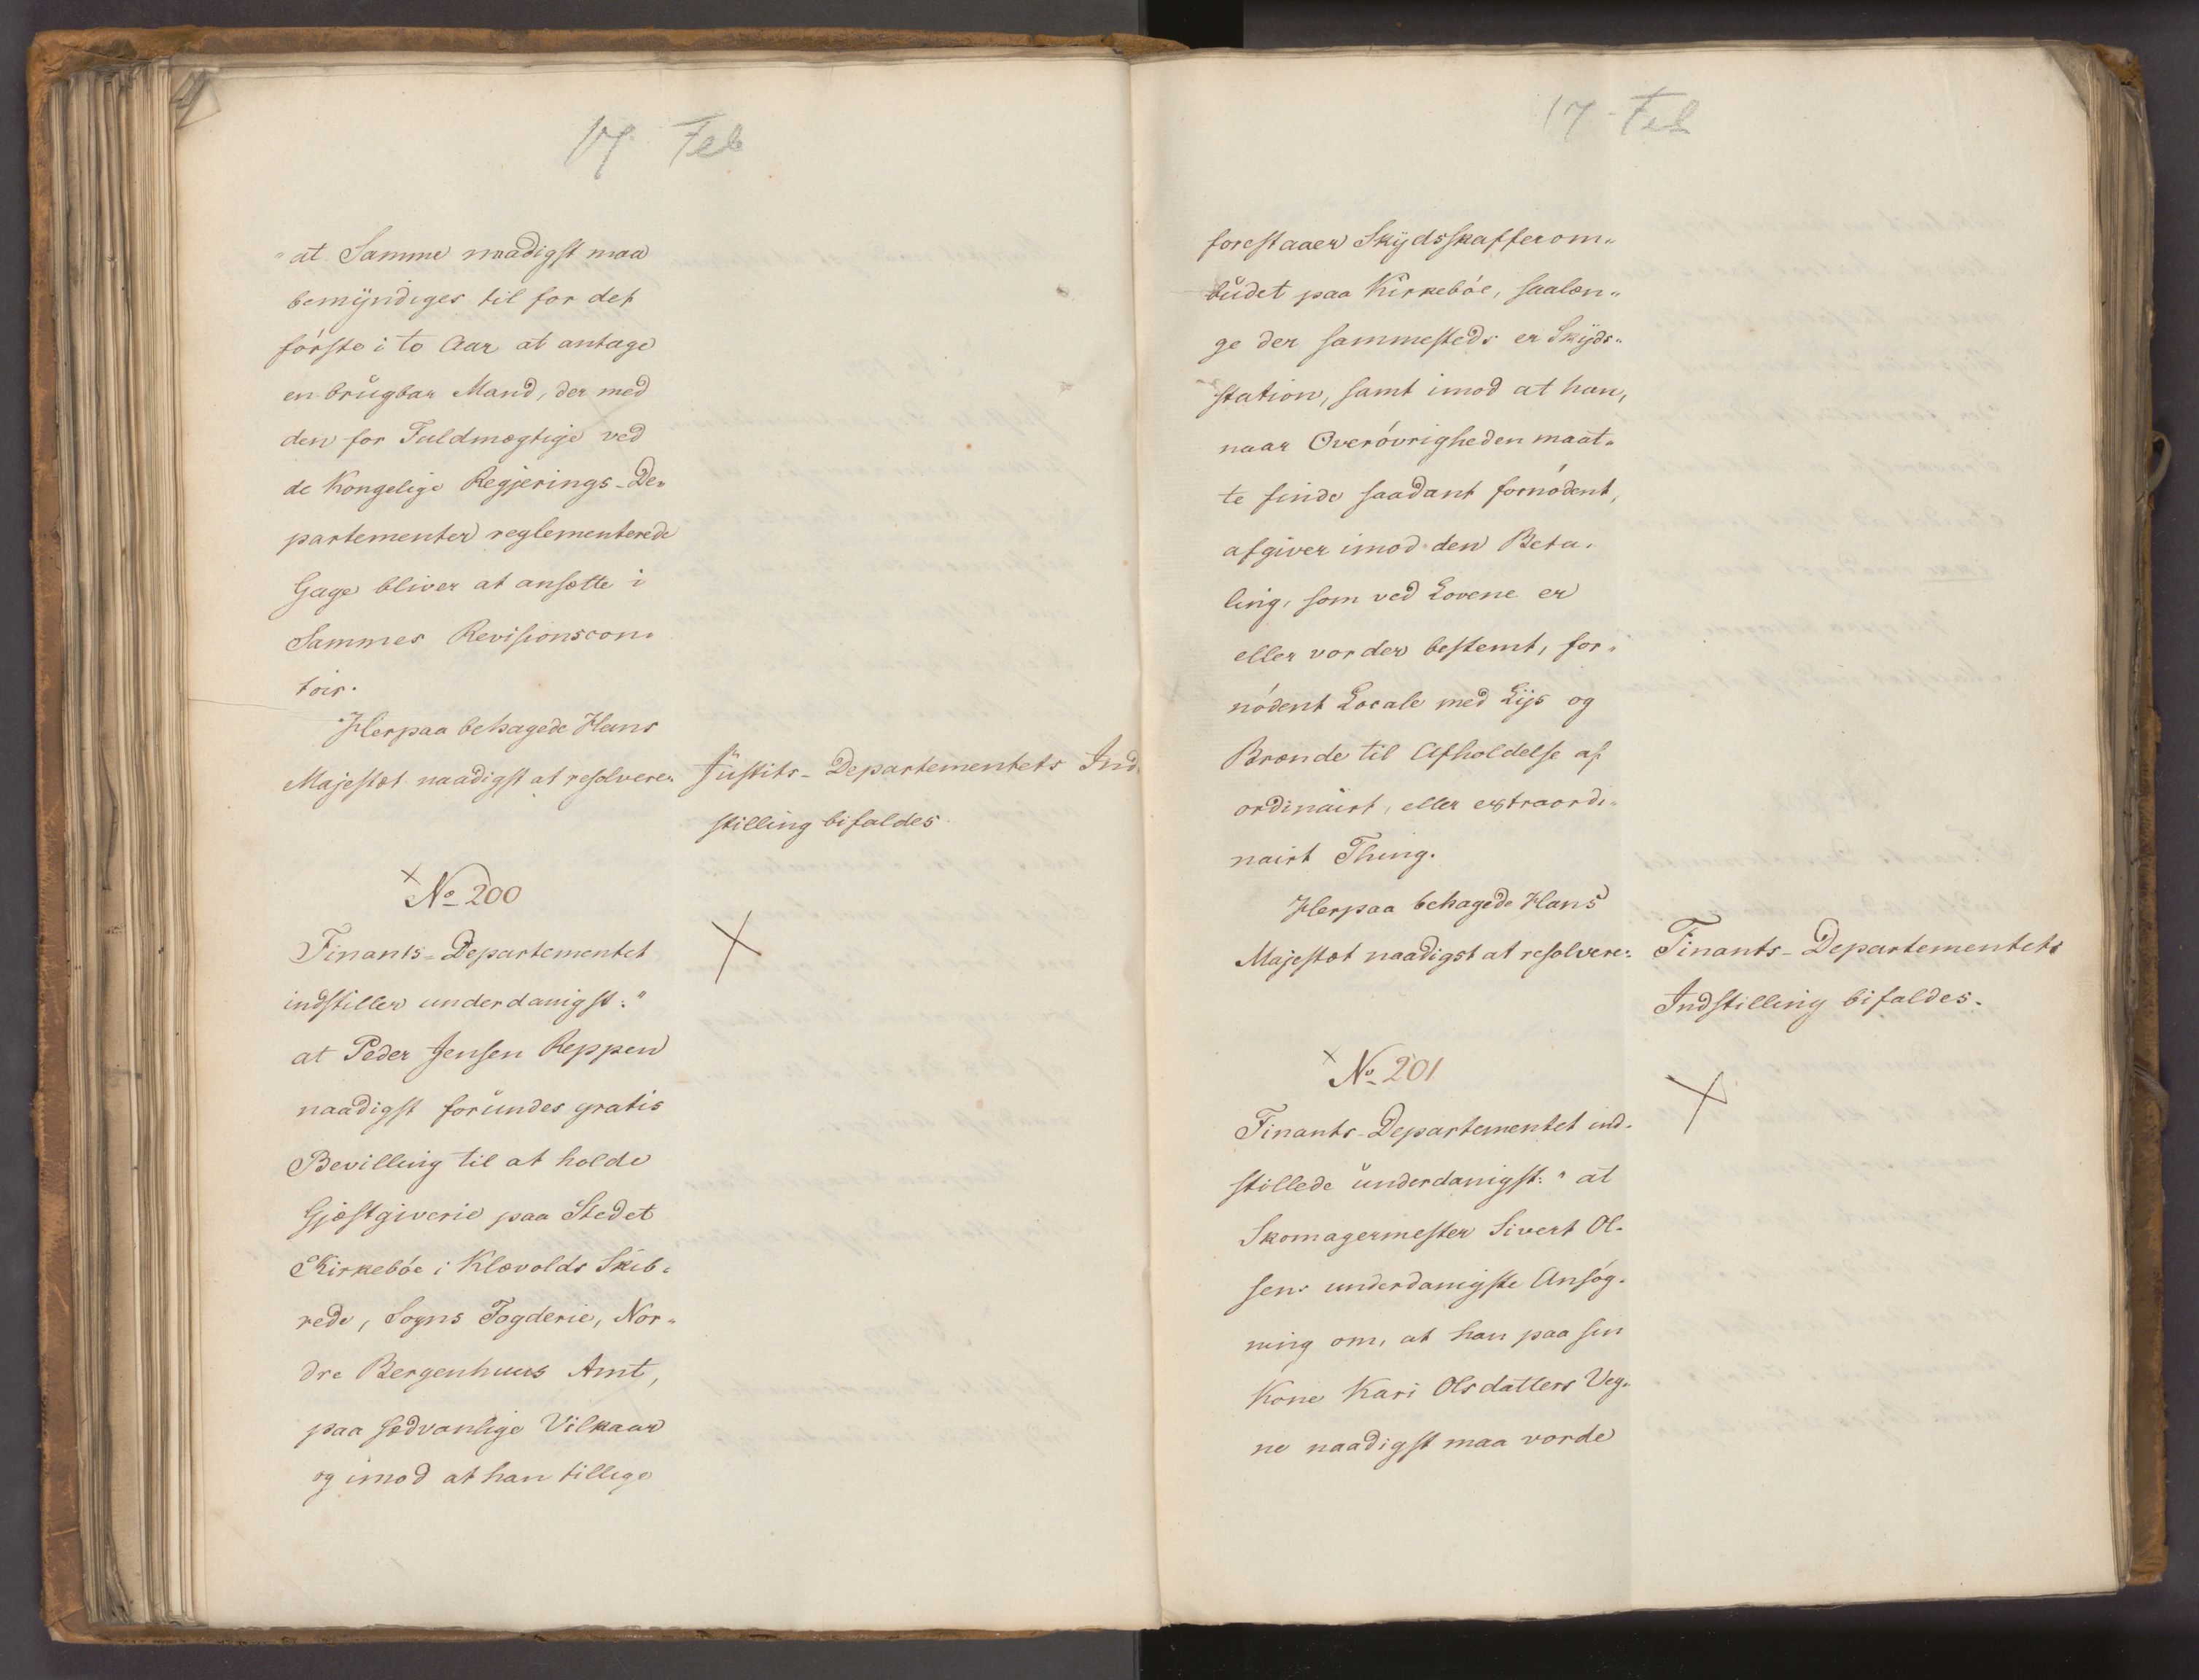 17 Feb
"at Samme naadigst maa
bemyndiges til for det
første i to Aar at antage
en brugbar Mand, der med
den for Fuldmægtige ved
de Kongelige Regjerings-De„
partementer reglementerede
Gage bliver at ansætte i
Sammes Revisionscon„
toir.
Herpaa behagede Hans
Majestæt naadigst at resolvere: Justits-Departementets Ind„
stilling bifaldes.
No 200
Finants-Departementet
indstiller underdanigst: "
at Peder Jensen Reppen
naadigst forundes gratis
Bevilling til at holde
Gjæstgiverie paa Stedet
Kirkebøe i Klævolds Skib„
rede, Sogns Fogderie, Nor„
dre Bergenhuus Amt,
paa sædvanlige Vilkaar
og imod at han tillige
17 Feb
forestaaer Skydsskafferom„
budet paa Kirkebøe, saalæn„
ge der sammesteds er Skyds„
station, samt imod at han,
naar Overøvrigheden maat„
te finde saadant fornødent,
afgiver imod den Beta„
ling, som ved Lovene er
eller vorder bestemt, for„
nødent Locale med Lys og
Brænde til Afholdelse af
ordinairt, eller extraordi„
nairt Thing.
Herpaa behagede Hans
Majestæt naadigst at resolvere: Finants-Departementets
Indstilling bifaldes.
No 201
Finants-Departementet ind„
stillede underdanigst: " at
Skomagermester Sivert Ol„
sens underdanigste Ansøg„
ning om, at han paa sin
Kone Kari Olsdatters Veg„
ne naadigst maa vorde